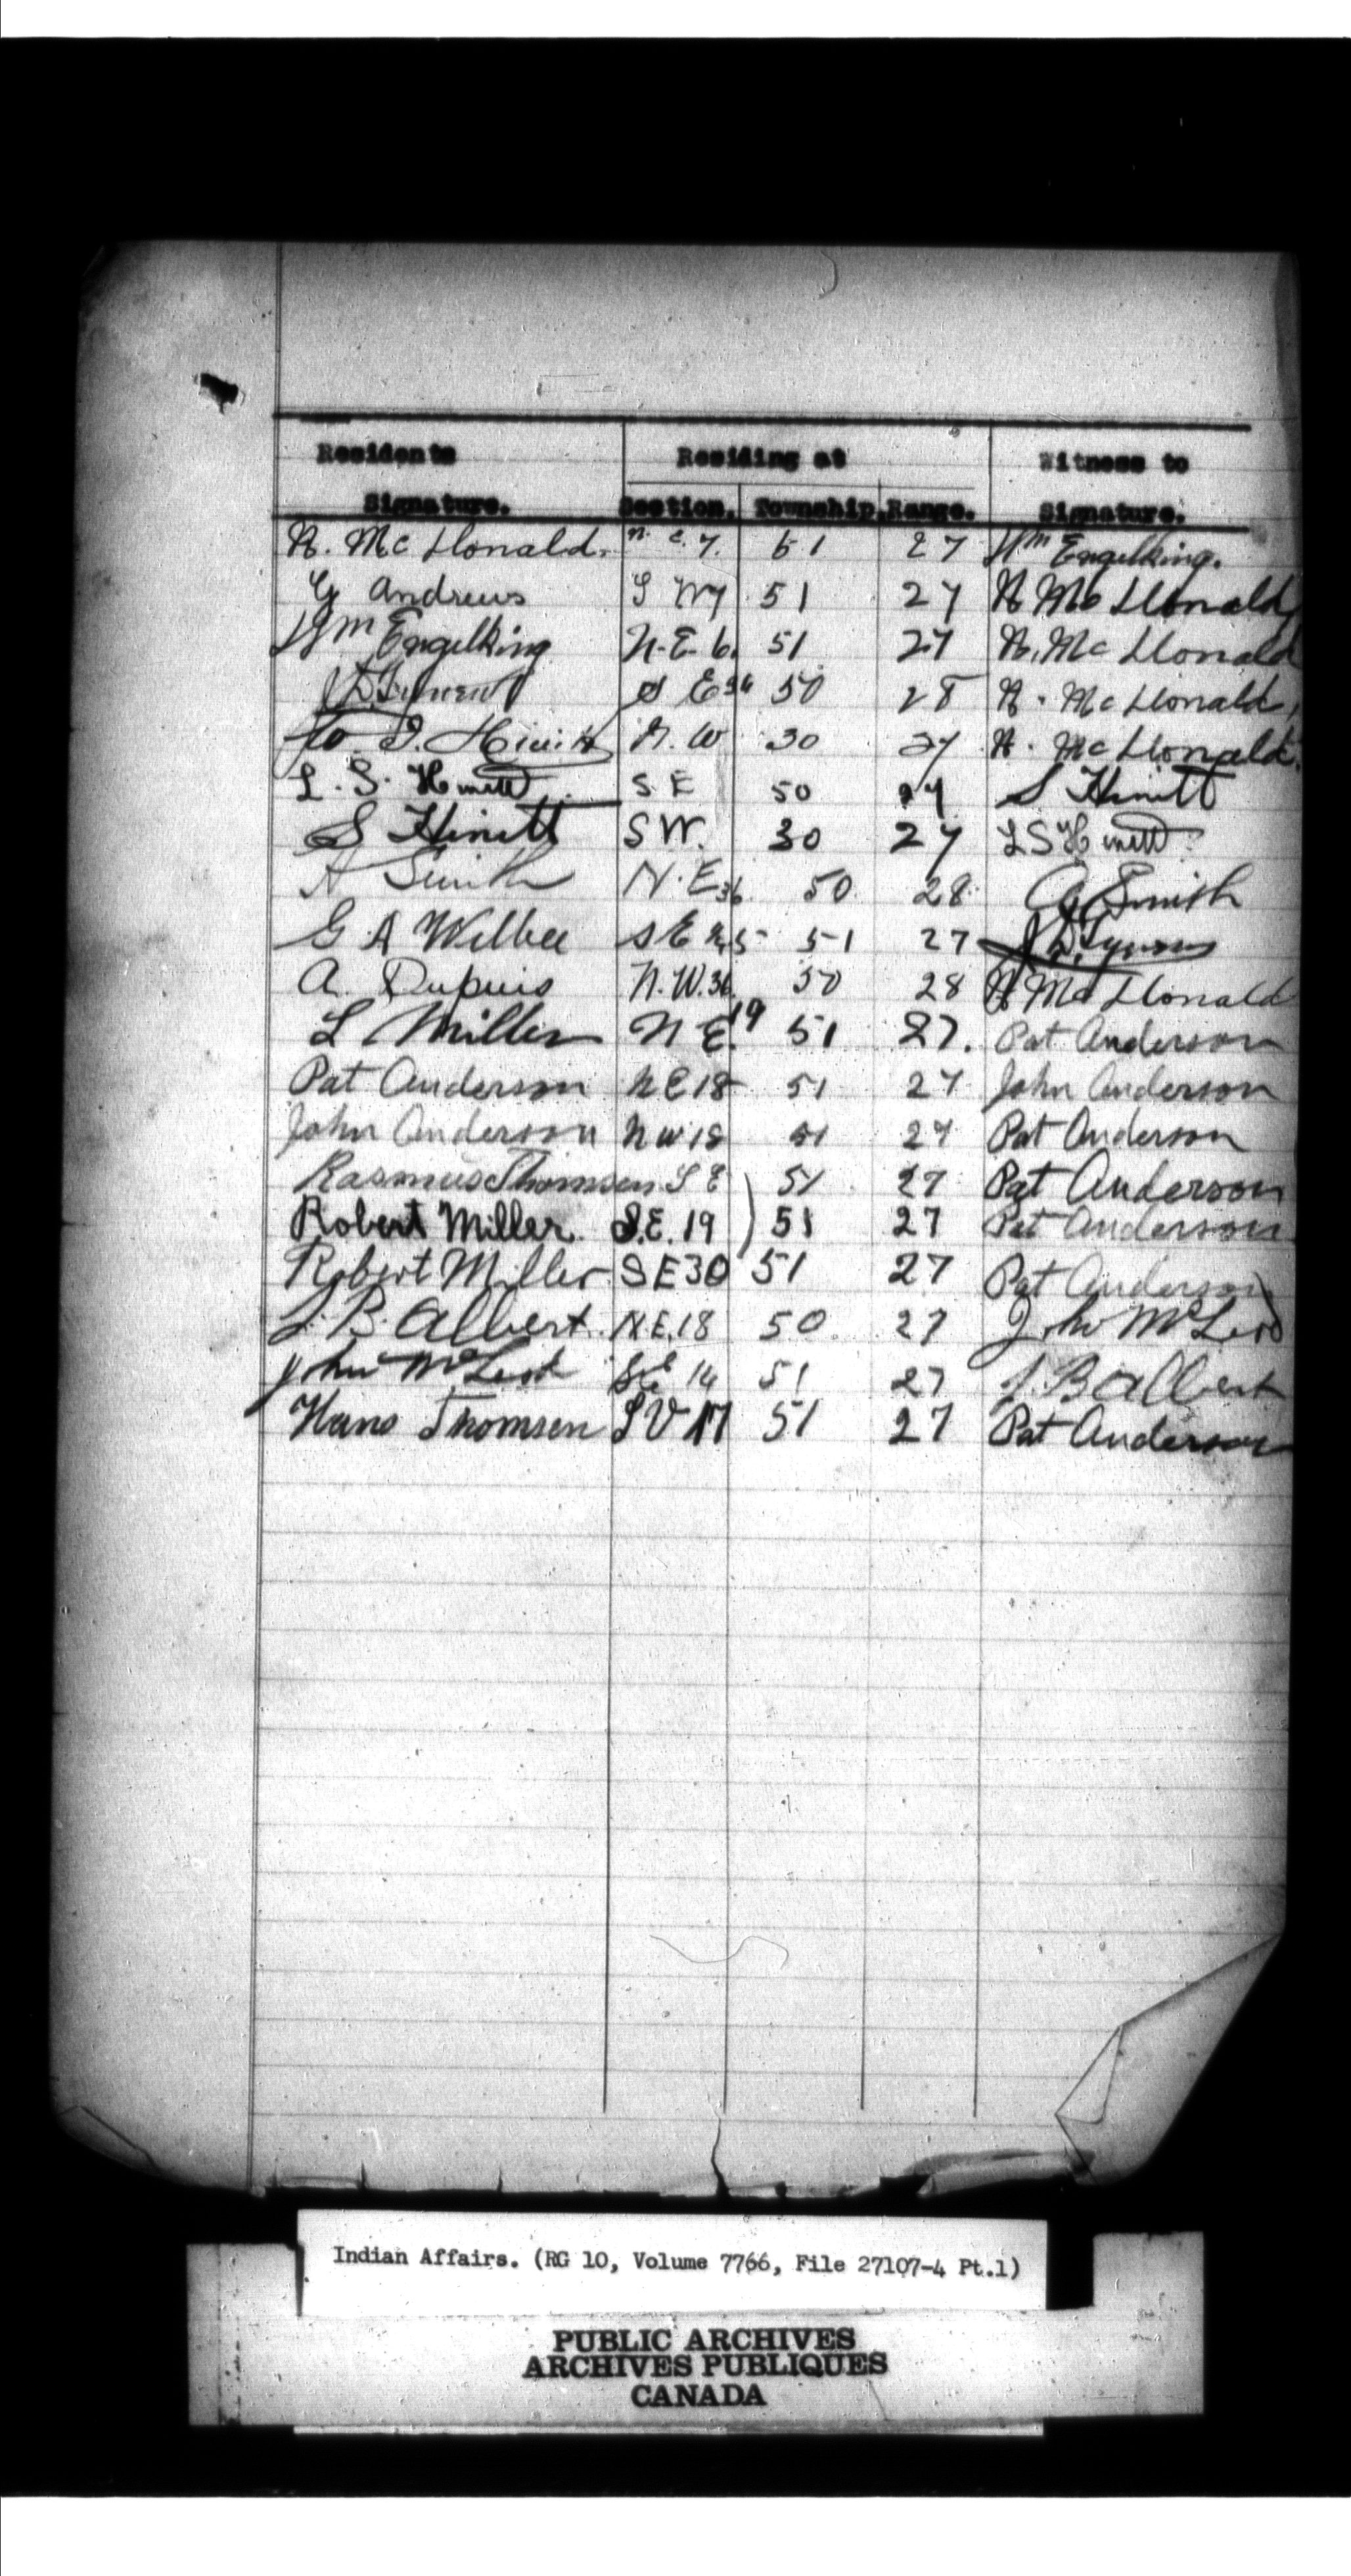 Residents Residing at Witness to
Signature. Section. Township. Range. Signature.
A. McDonald. n.e. 7. 51 27 Wm Engelking.
G Andrews S W 7 51 27 A McDonald
Wm Engelking N.E. 6. 51 27 A. McDonald
S E 36 50 28 A. McDonald,
N. W 30 27 A. McDonald.
L. S. Hinitt S E 50 27 S Hinitt
S Hinitt S W. 30 27 L S Hinitt
A Smith N. E 36 50 28 Smith
G A Welbee S E 51 27
A. Dupuis N. W. 36. 50 28 A McDonald
L Miller N E. 19 51 27. Pat Anderson
Pat Anderson N E 18 51 27 John Anderson
John Anderson N W 18 51 27 Pat Anderson
Rasmus Thomsen S E 51 27 Pat Anderson
Robert Miller. S.E. 19 51 27 Pat Anderson
Robert Miller SE 30 51 27 Pat Anderson
J. B. Albert. N.E. 18 50 27 John McLeod
John McLeod 14 51 27 J. B Albert
Hans Thomsen 17 51 27 Pat Anderson
Indian Affairs. (RG 10, Volume 7766, File 27107-4 Pt.1)
PUBLIC ARCHIVES
ARCHIVES PUBLIQUES
CANADA